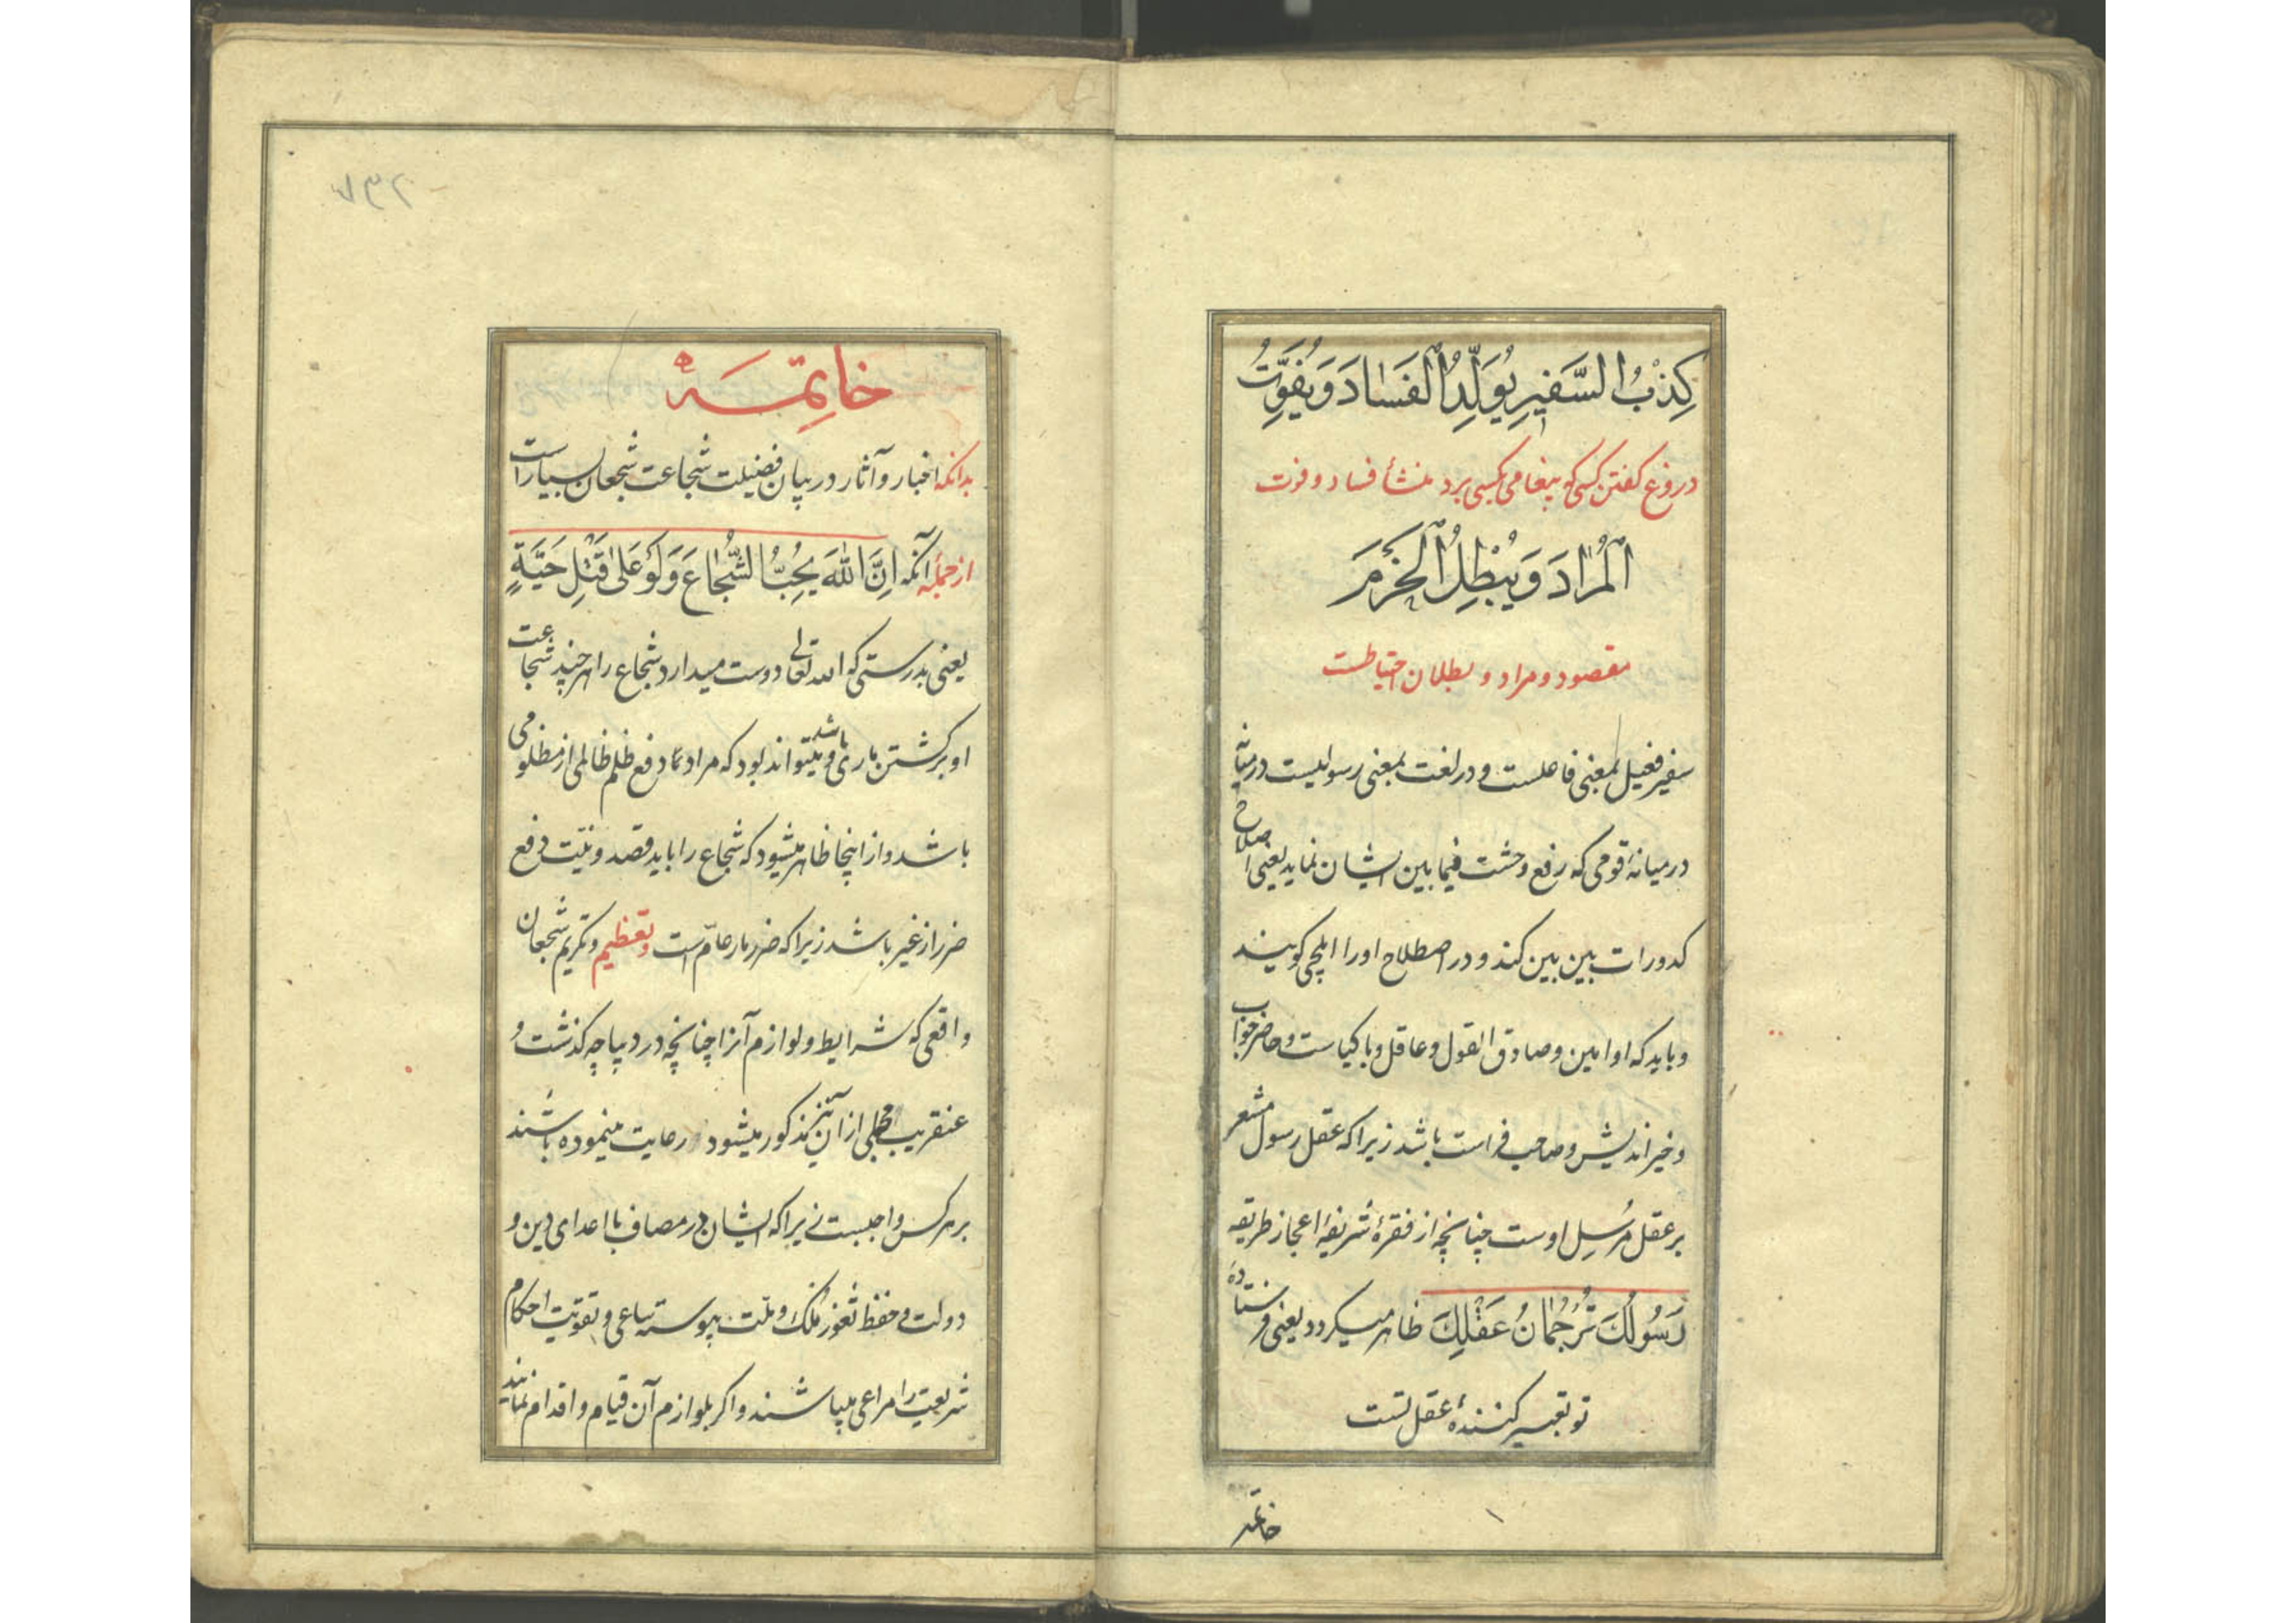 كِذْبُ السَّفِيرِ يُوَلِّدُ الْفَسَادَ وَيُفَوِّتُ
دروغ کفتن کسی که پیغامی بکسی برد منشأ فساد و فوت
الْمُرَادَ وَيُبْطِلُ الْحَزْمَ
مقصود و مراد و بطلان احتیاطست
سفیر فعیل بمعنی فاعلست و در لغت بمعنی رسولیست در میانه
در میانهٔ قومی که رفع وحشت فیما بین ایشان نماید یعنی اصلاح
کدورات بین بین کند و در اصطلاح او را ایلچی کویند
و باید که او امین و صادق القول و عاقل و با کیاست و حاضر جواب
و خیر اندیش و صاحب فراست باشد زیرا که عقل رسول مشعر
بر عقل مُرسِل اوست چنانچه از فقرهٔ شریفهٔ اعجاز طریقه
رَسُولُكَ تَرْجُمَانُ عَقْلِكَ ظاهر میکردد یعنی فرستادهٔ
تو تعبیر کنندهٔ عقل تست
خاتمه
خاتِمَهْ
بدانکه اخبار و آثار در بیان فضیلت شجاعت شجعان بسیار است
از جمله آنکه اِنَّ اللّٰهَ يُحِبُّ الشُّجَاعَ وَلَوْ عَلىٰ قَتْلِ حَيَّةٍ
یعنی بدرستی که الله تعالی دوست میدارد شجاع را هر چند شجاعت
او بر کشتن ماری باشد و میتواند بود که مراد دفع ظلم ظالمی از مظلومی
باشد و از اینجا ظاهر میشود که شجاع را باید قصد و نیّت دفع
ضرر از غیر باشد زیرا که ضرر مار عامّ است و تعظیم و تکریم شجعان
واقعی که شرایط و لوازم آنرا چنانچه در دیباچه کذشت و
عنقریب مجملی از آن نیز مذکور میشود رعایت مینموده باشند
بر هر کس واجبست زیرا که ایشان در مصاف با اعدای دین و
دولت و حفظ ثغور مُلک و ملّت پیوسته ساعی و تقویت احکام
شریعت را مراعی میباشند و اکر بلوازم آن قیام و اقدام نمایند